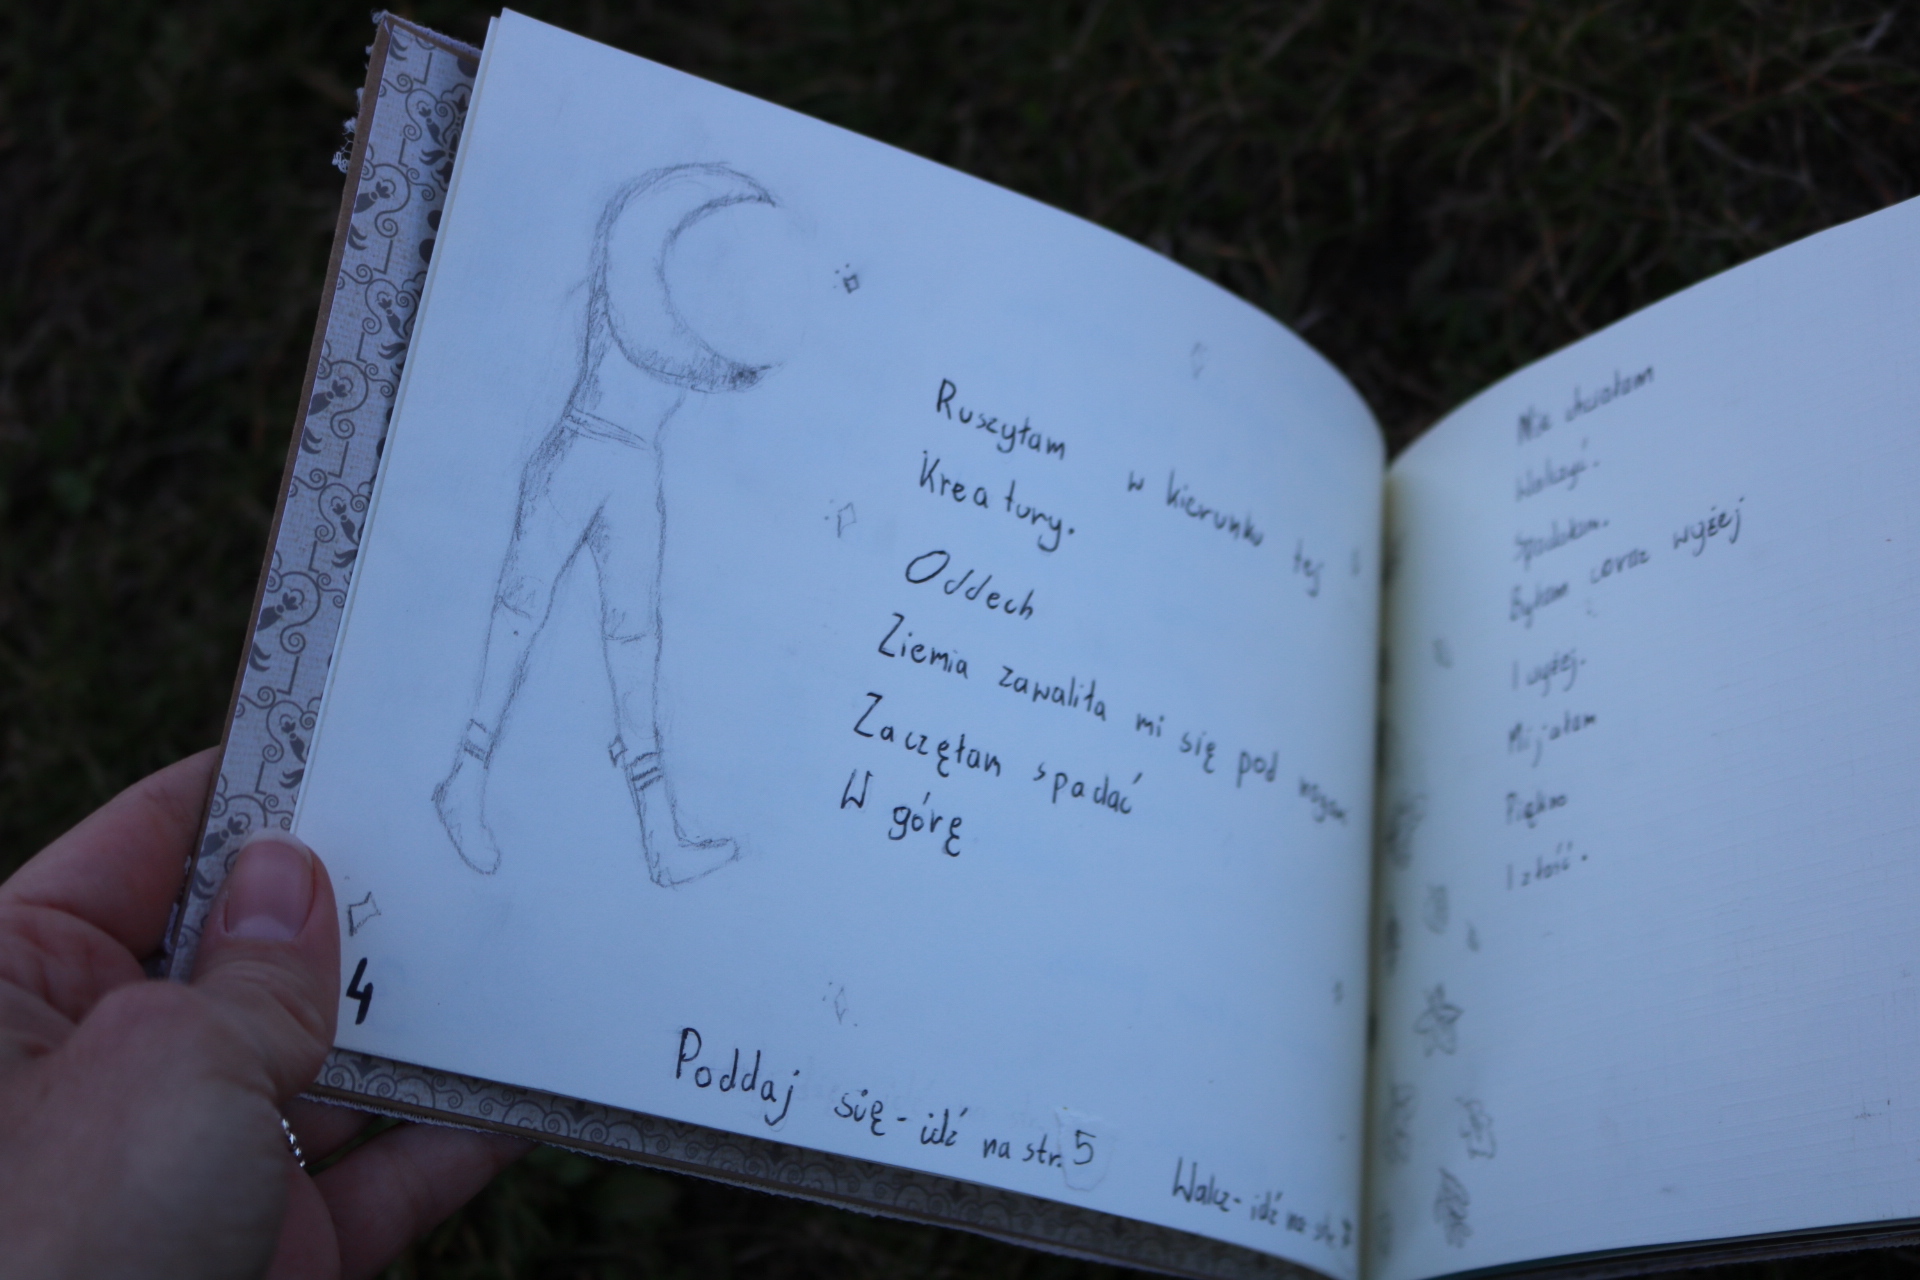 Ruszyłam w kierunku tej
Kreatury.
Oddech
Ziemia zawaliła mi się pod nogami
Zaczęłam spadać
W górę
4
Poddaj się - idź na str. 5
Walcz - idź na str. 7
Nie chciałam
Walczyć.
Spadałam.
Byłam coraz wyżej
I wyżej.
Mijałam
Piękno
I złość.